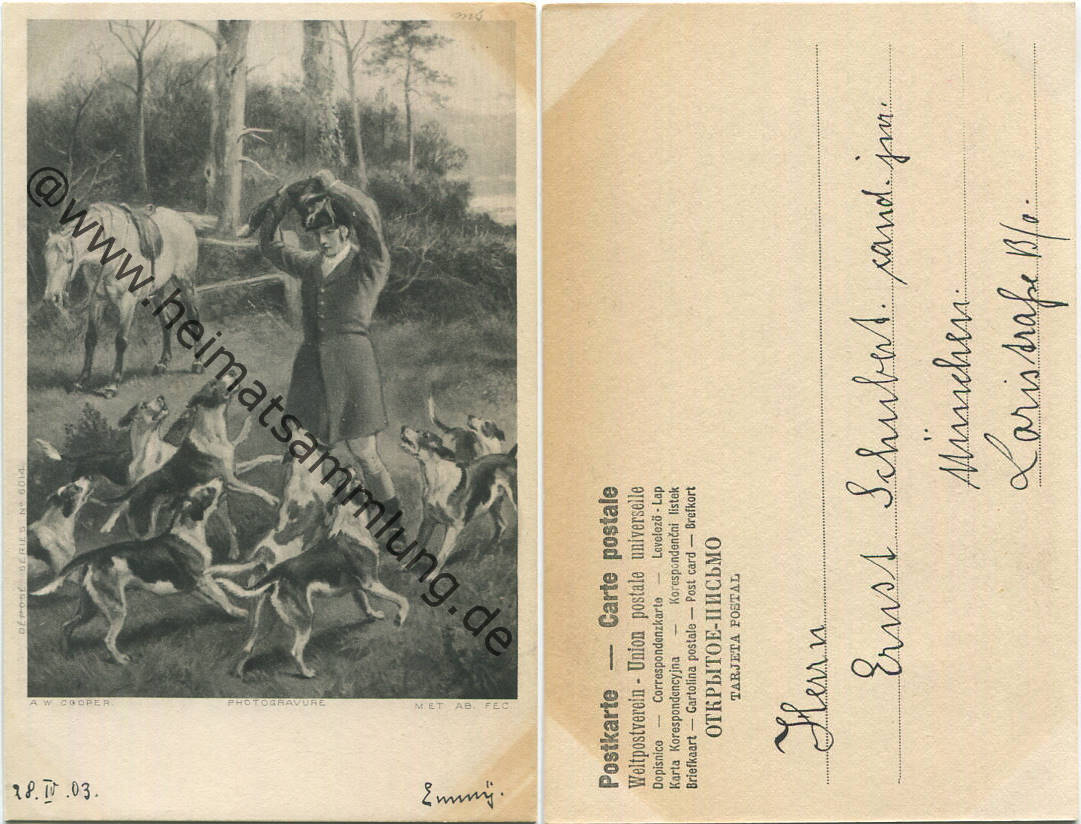 @www.heimatsammlung.de
DÉPOSÉ. SERIES Nº 6014.
A.W. COOPER. PHOTOGRAVURE MET AB. FEC.
28. IV .03. Emmÿ.
Postkarte — Carte postale
Weltpostverein - Union postale universelle
Dopisnice — Correspondenzkarte — Levelező-Lap
Karta Korespondencyjna — Korespondenční listek
Briefkaart — Cartolina postale — Post card — Brefkort
ОТКРЫТОЕ-ПИСЬМО
TARJETA POSTAL
Herrn
Ernst Schubert. cand. jur.
München.
Larisstraße